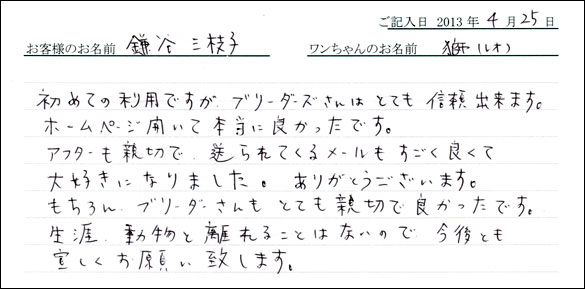 ご記入日 2013年 4月 25日
お客様のお名前 鎌谷 三枝子 ワンちゃんのお名前 (ルオ)
初めての利用ですが、ブリーダーズさんはとても信頼出来ます。
ホームページ開いて本当に良かったです。
アフターも親切で、送られてくるメールもすごく良くて
大好きになりました。ありがとうございます。
もちろん、ブリーダーさんもとても親切で良かったです。
生涯、動物と離れることはないので、今後とも
宜しくお願い致します。